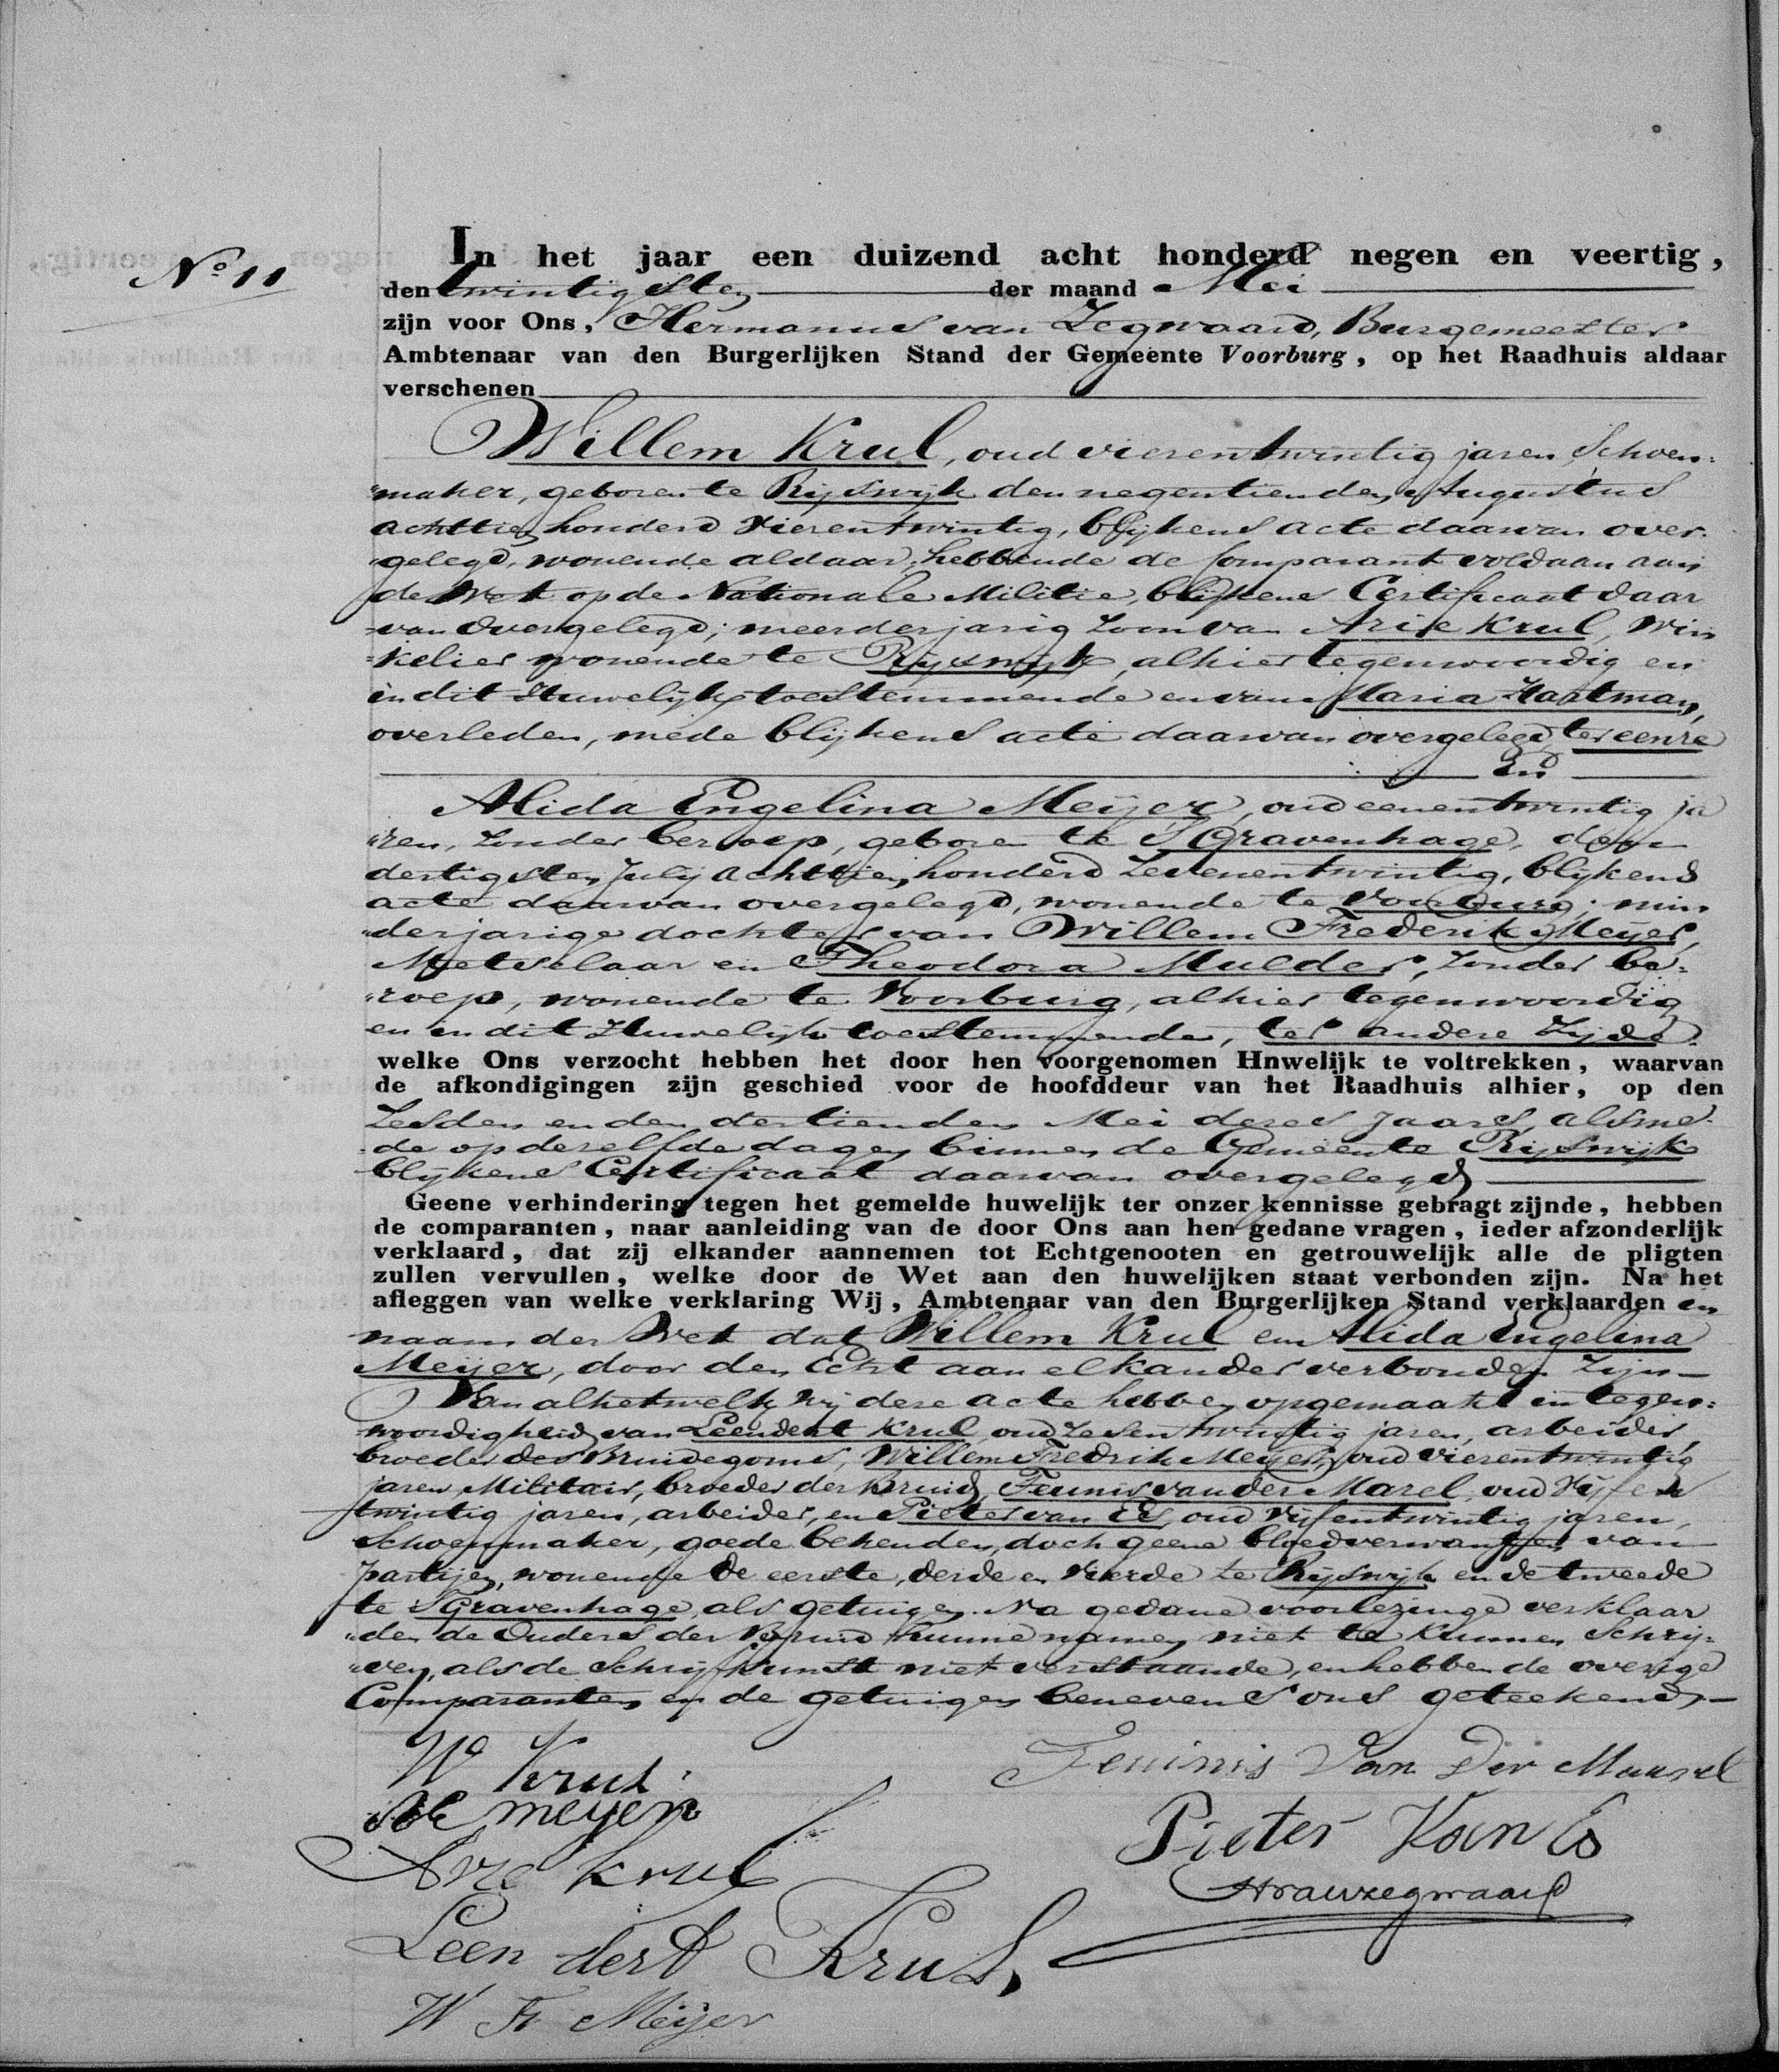 No 11
In het jaar een duizend acht honderd negen en veertig,
den twintigsten der maand Mei
zijn voor Ons, Hermanus van Zegwaard, Burgemeester
Ambtenaar van den Burgerlijken Stand der Gemeente Voorburg, op het Raadhuis aldaar
verschenen
Willem Krul, oud vierentwintig jaren, Schoen=
"maker, geboren te Rijswijk den negentienden Augustus
achttien honderd vierentwintig, blijkens acte daarvan over=
"gelegd, wonende aldaar, hebbende de Comparant voldaan aan
de Wet op de Nationale Militie, blijkens Certificaat daar
=van overgelegd; meerderjarig zoon van Arie Krul, Win
=kelier wonende te Rijswijk, alhier tegenwoordig en
in dit Huwelijk toestemmende en van Maria Haatman,
overleden, mede blijkens acte daarvan overgelegd, ter eenre
En
Alida Engelina Meijer, oud eenentwintig ja
"ren, zonder beroep, geboren te S'Gravenhage, den
dertigsten Julij achttien honderd zevenentwintig, blijkens
acte daarvan overgelegd, wonende te Voorburg; min
"derjarige dochter van Willem Frederik Meijer,
Metselaar en Theodora Mulder, zonder be=
"roep, wonende te Voorburg, alhier tegenwoordig
en in dit Huwelijk toestemmende, ter andere zijde
welke Ons verzocht hebben het door hen voorgenomen Hnwelijk te voltrekken, waarvan
de afkondigingen zijn geschied voor de hoofddeur van het Raadhuis alhier, op den
Zesden en den dertienden Mei dezes jaars, alsme=
=de op dezelfde dagen binnen de Gemeente Rijswijk
blijkens Certificaat daarvan overgelegd
Geene verhindering tegen het gemelde huwelijk ter onzer kennisse gebragt zijnde, hebben
de comparanten, naar aanleiding van de door Ons aan hen gedane vragen, ieder afzonderlijk
verklaard, dat zij elkander aannemen tot Echtgenooten en getrouwelijk alle de pligten
zullen vervullen, welke door de Wet aan den huwelijken staat verbonden zijn. Na het
afleggen van welke verklaring Wij, Ambtenaar van den Burgerlijken Stand verklaarden in
naam der Wet dat Willem Krul en Alida Engelina
Meijer, door den Echt aan elkander verbonden zijn
Van al hetwelk wij deze acte hebben opgemaakt in tegen=
woordigheid van Leendert Krul, oud zesentwintig jaren, arbeider,
broeder des Bruidegoms, Willem Fredrik Meijer, oud vierentwintig
jaren Militair, broeder der Bruid, Teunis van der Marel, oud vijfen
twintig jaren, arbeider, en Pieter van Es, oud vijfentwintig jaren,
Schoenmaker, goede bekenden, doch geene bloedverwanten van
partijen, wonende de eerste, derde en vierde te Rijswijk en de tweede
te S'Gravenhage, als getuigen. Na gedane voorlezinge verklaar
"den de Ouders der Bruid hunne namen niet te kunnen Schrij=
"ven, als de Schrijfkunst niet verstaande, en hebben de overige
Comparanten en de getuigen benevens ons geteekend
W Krul
AE meyer
Teuinis Van Der Maarel
Arie Krul
Pieter Van Es
Leendert Krul
HvanZegwaard
W Fr Meijer